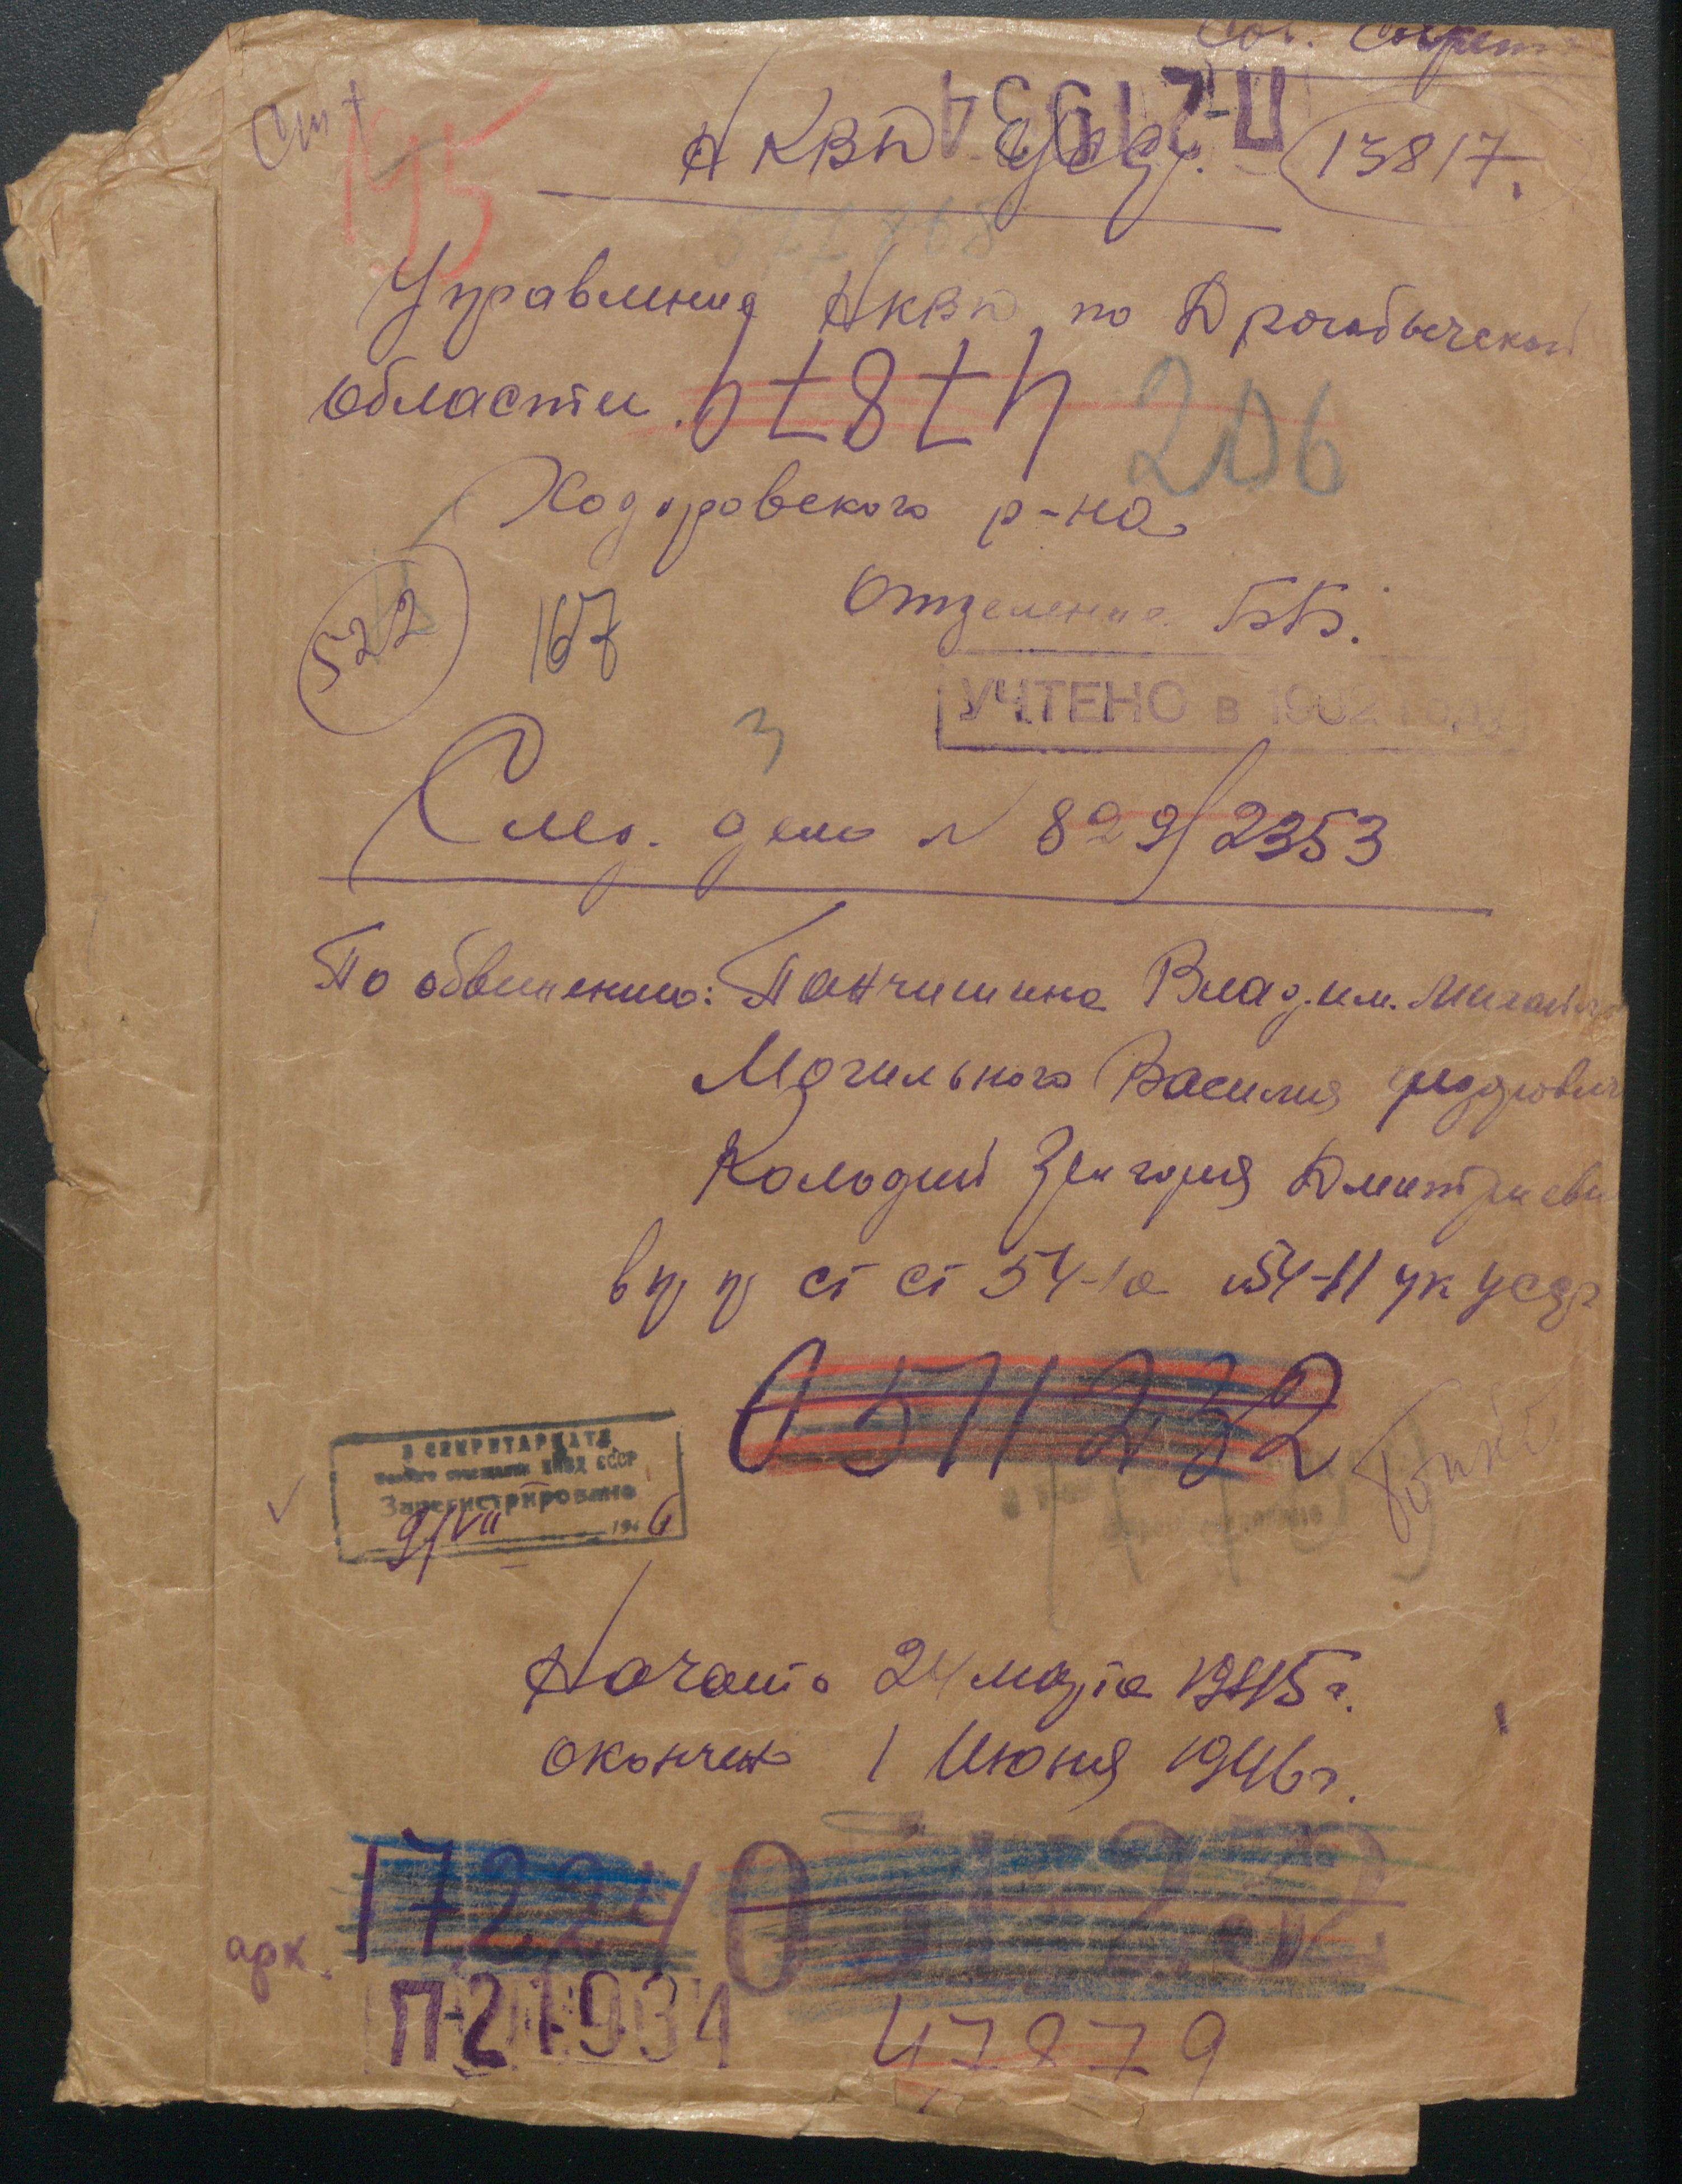 Сов. Секрет
П-21934
НКВД УССР. 13817.
195
Управление НКВД по Дрогобычской
области. 47879
206
Ходоровского р-на
Отделение ББ.
522
167
УЧТЕНО в 1962 году
3
След. дело № 829/2353
По обвинению: Панчишина Владим. Михайло
Могильного Василия Федорович
Колодий Григория Дмитриеви
в пр пр ст ст 54-1а и 54-11 ук УССР
0511232
В СЕКРЕТАРИАТЕ
Особого совещания НКВД СССР
Зарегистрировано
9/VII 1946
Начато 24 марта 1945 г.
окончено 1 Июня 1946 г.
17224
арх.
П-21934
47879